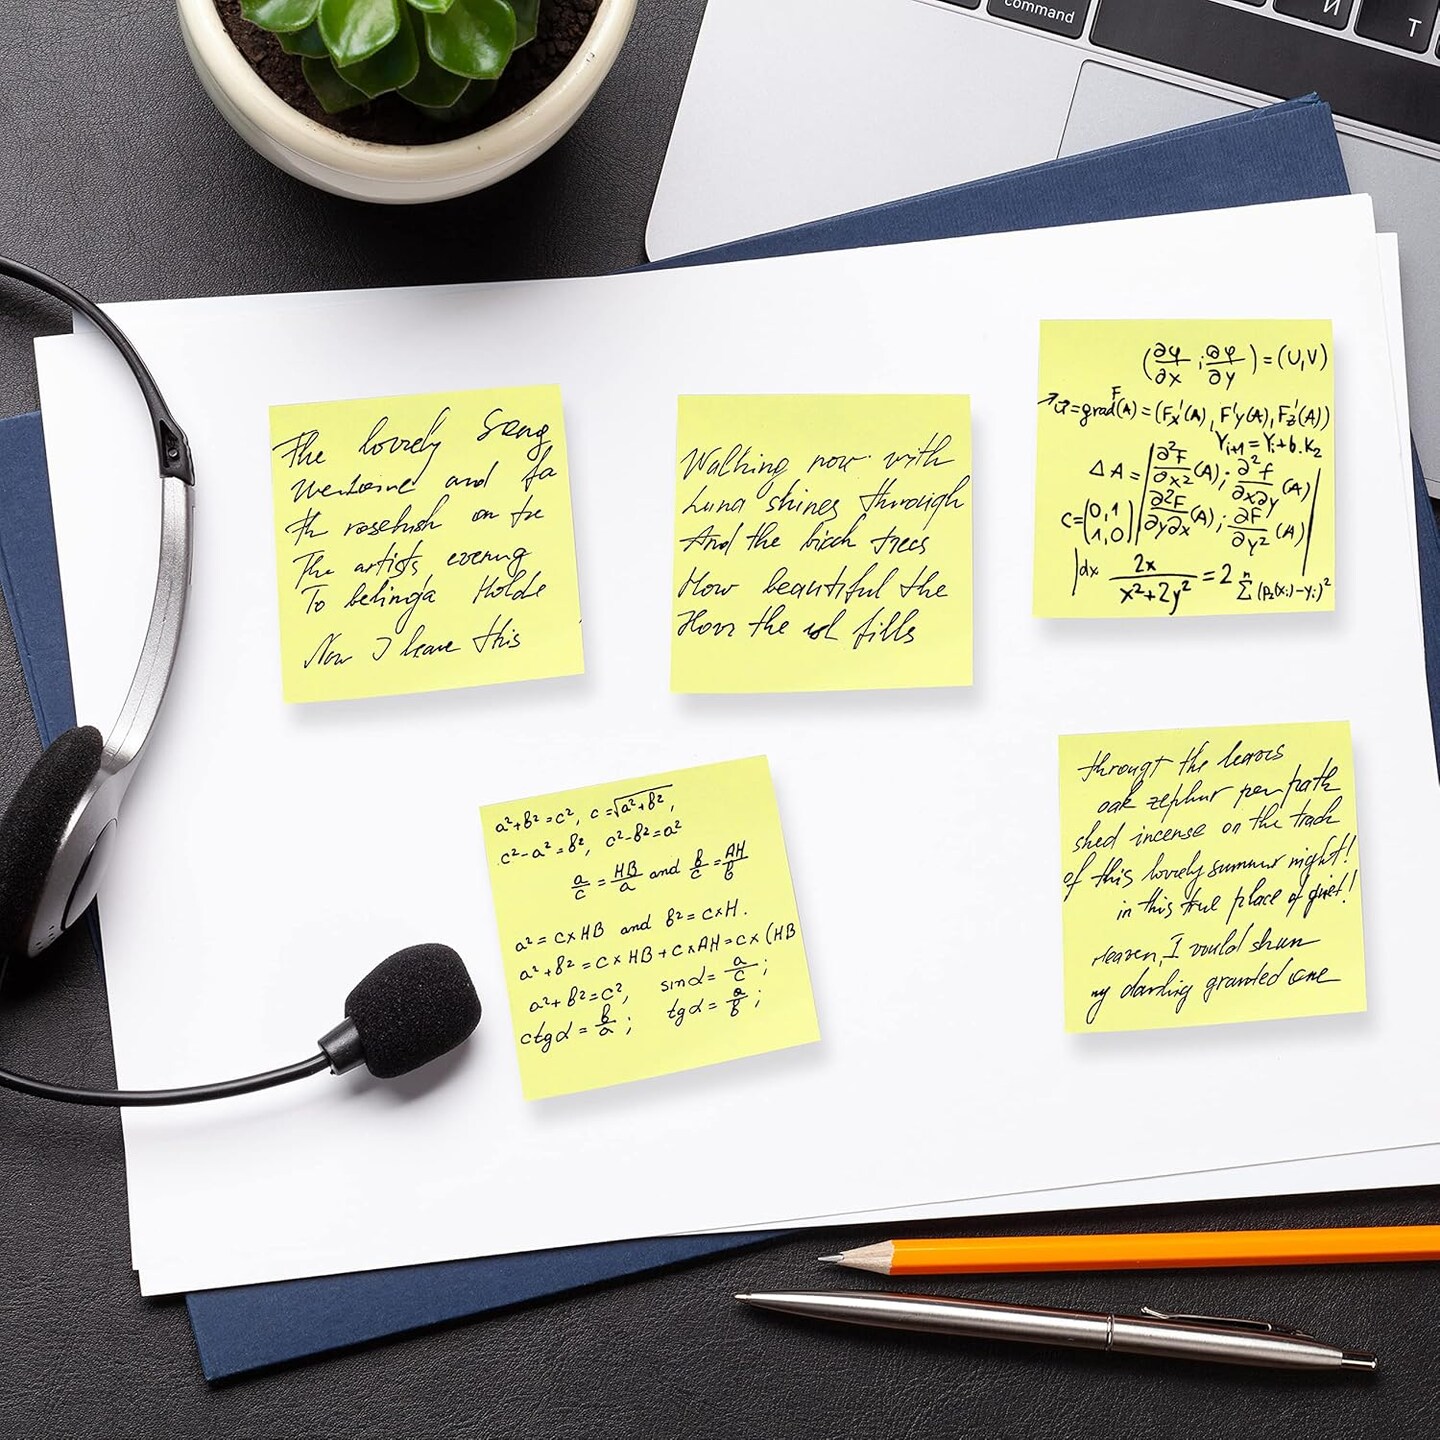 command
И
T
The lovely Song
and
the rosebush on the
The artists evening
To
Now I leave this
Walking now with
Luna shines through
And the birch trees
How beautiful the
How the fills
(∂φ/∂x ; ∂φ/∂y) = (U,V)
u = grad F(A) = (Fx'(A), F'y(A), Fz'(A))
Yi+1 = Yi + b.K2
ΔA = |∂²F/∂x² (A); ∂²f/∂x∂y (A)
c = (0,1 1,0) ∂²F/∂y∂x (A); ∂F/∂y² (A)|
|dx 2x/x²+2y² = 2 n∑ (p2(xi)-yi)²
a²+b²=c², c=√a²+b²,
c²-a²=b², c²-b²=a²
a/c = HB/a and b/c = AH/b
a² = c×HB and b² = c×H.
a²+b² = c×HB+c×AH=c×(HB
a²+b²=c², sinα = a/c ;
ctgα = b/a ; tgα = a/b ;
through the leaves
oak zephyr per path
shed incense on the track
of this lovely summer night!
in this true place of quiet!
Heaven, I would shun
my darling granted one